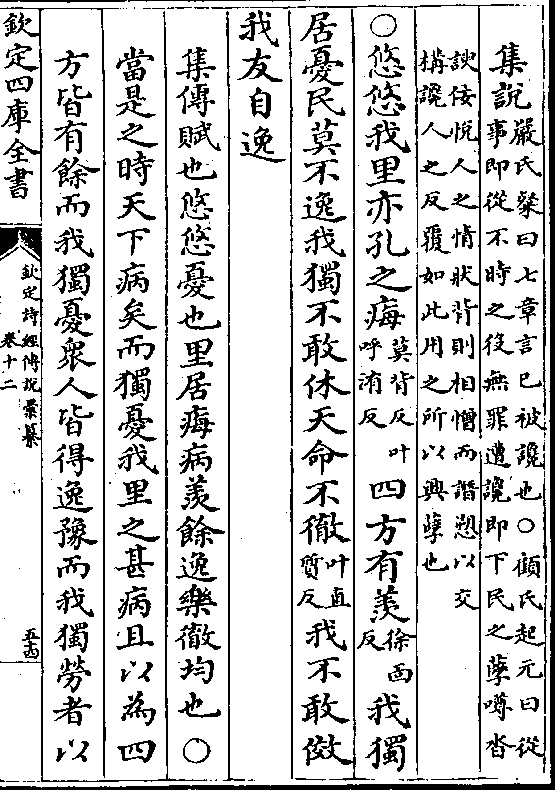 集説嚴氏粲曰七章言已被讒也○顧氏起元曰從
事即從不時之役無罪遭讒即下民之孽噂沓
䛕佞悅人之情狀背則相憎而譖愬以交
構讒人之反覆如此用之所以興孽也
○悠悠我里亦孔之痗莫背反叶呼洧反四方有羨徐面反我獨
居憂民莫不逸我獨不敢休天命不徹叶直質反我不敢傚
我友自逸
集傳賦也悠悠憂也里居痗病羨餘逸樂徹均也○
當是之時天下病矣而獨憂我里之甚病且以為四
方皆有餘而我獨憂衆人皆得逸豫而我獨勞者以
欽定四庫全書
欽定詩經傳說彙纂
卷十二
五十四